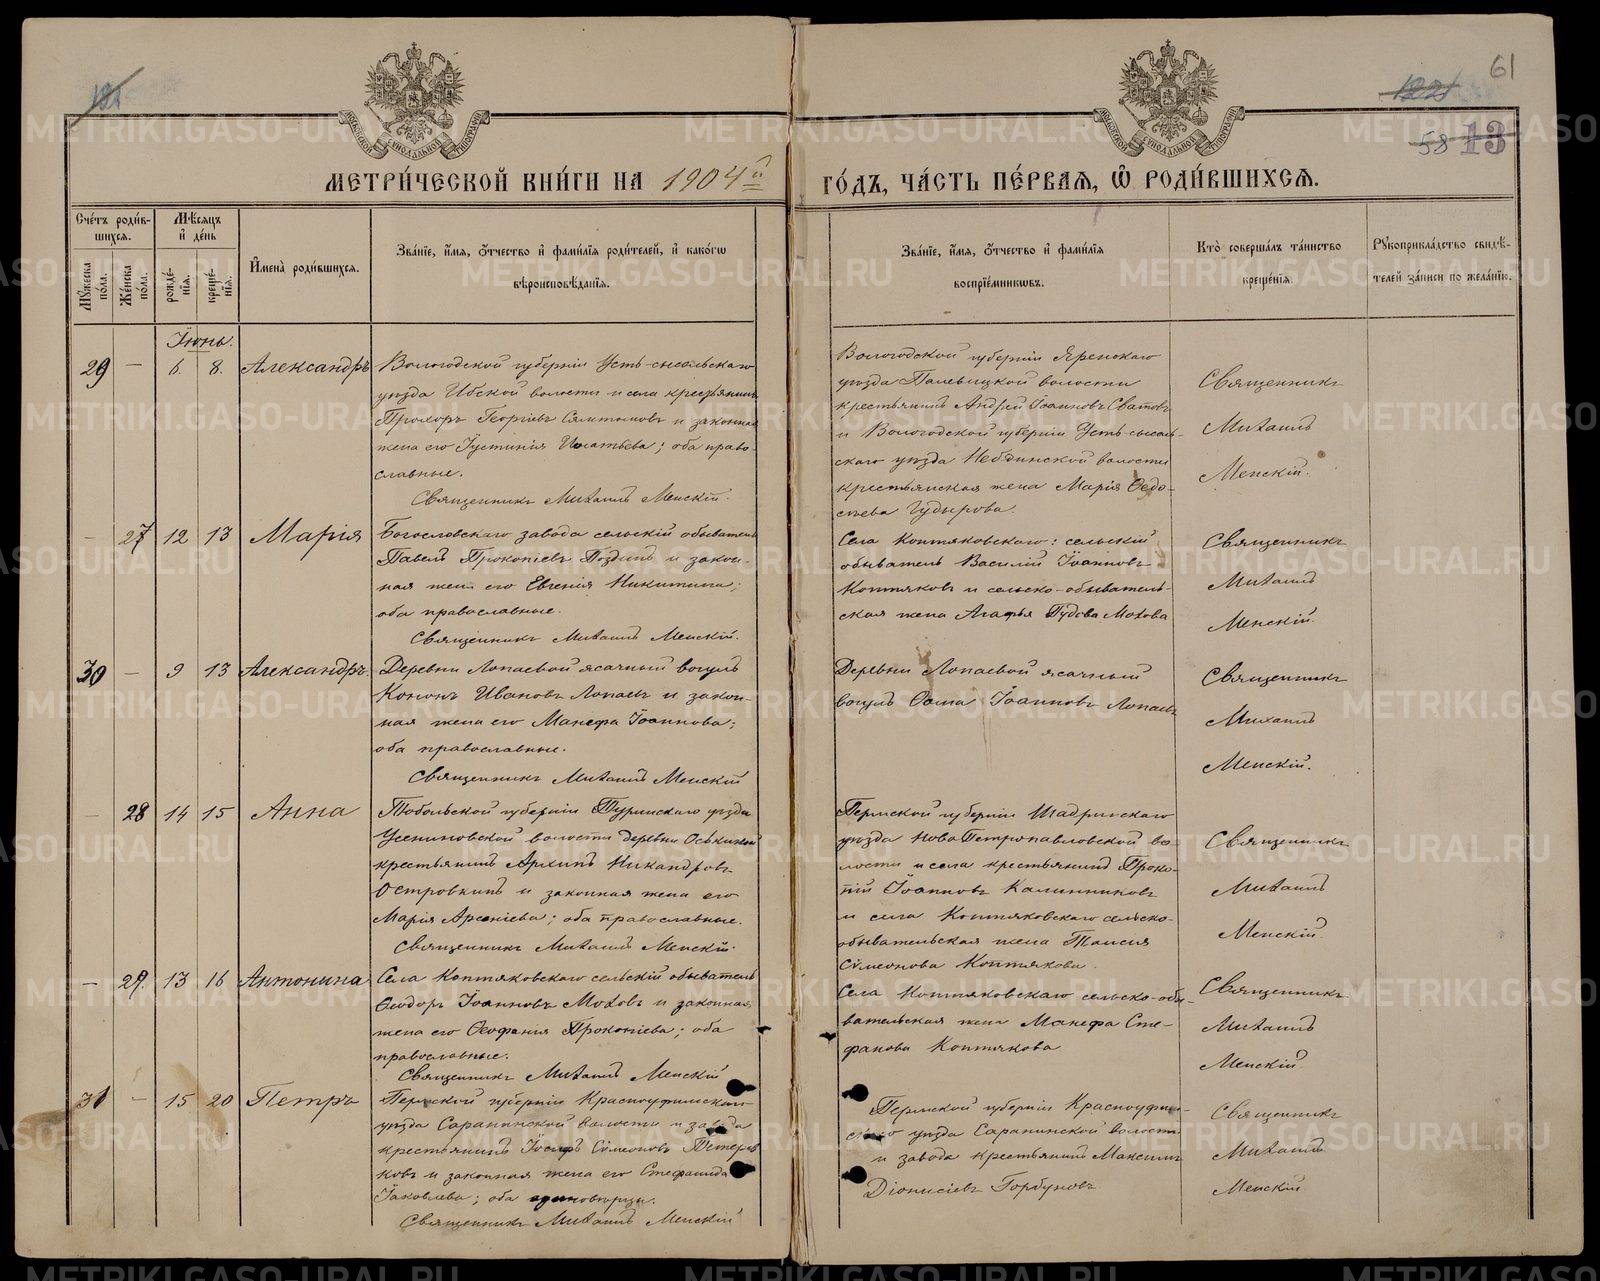 121
61
58 13
МОСКОВСКОЙ СУНОДАЛЬНОЙ ТИПОГРАФІИ
МОСКОВСКОЙ СУНОДАЛЬНОЙ ТИПОГРАФІИ
МЕТРИ́ЧЕСКОЙ КНИ́ГИ НА 1904й ГО́ДЪ, ЧА́СТЬ ПЕ́РВАѦ, Ѽ РОДИ́ВШИХСѦ.
Сче́тъ роди́в-
шихсѧ.
Мѣ́сѧцъ
и҆ де́нь
Мꙋ́жеска
по́ла.
Же́нска
по́ла.
рожде́-
нїѧ.
креще́-
нїѧ.
И҆мена̀ роди́вшихсѧ.
Зва́нїе, и҆́мѧ, ѻ҆́тчество и҆ фами́лїѧ роди́телей, и҆ како́гѡ
вѣроисповѣ́данїѧ.
Зва́нїе, и҆́мѧ, ѻ҆́тчество и҆ фами́лїѧ
воспрїе́мникѡвъ.
Кто̀ соверша́лъ та́инство
креще́нїѧ.
Рꙋкоприкла́дство свидѣ́-
телей за́писи по жела́нїю.
Іюнь.
29 — 6. 8. Александръ
Вологодской губерніи Усть-сысольскаго
уѣзда Ибской волости и села крестьянинъ
Прохоръ Георгіевъ и законная
жена его Іустинія Игнатьева; оба право-
славные.
Священникъ Михаилъ Менскій.
Вологодской губерніи Яренскаго
уѣзда Палевицкой волости
крестьянинъ Андрей Іоанновъ Сватовъ
и Вологодской губерніи Усть-сысоль-
скаго уѣзда Небдинской волости
крестьянская жена Марія Ѳедо-
сѣева Гудырова.
Священникъ
Михаилъ
Менскій.
— 27 12 13 Марія
Богословскаго завода сельскій обыватель
Павелъ Прокопіевъ Поздинъ и закон-
ная жена его Евгенія Никитина;
оба православные.
Священникъ Михаилъ Менскій.
Села Коптяковскаго: сельскій
обыватель Василій Іоанновъ
Коптяковъ и сельско-обыватель-
ская жена Агафья Мохова
Священникъ
Михаилъ
Менскій.
30 — 9 13 Александръ
Деревни Лопаевой ясачный вогулъ
Кононъ Ивановъ Лопаевъ и закон-
ная жена его Манефа Іоаннова;
оба православные.
Священникъ Михаилъ Менскій
Деревни Лопаевой ясачный
вогулъ Ѳома Іоанновъ Лопаевъ
Священникъ
Михаилъ
Менскій.
— 28 14 15 Анна
Тобольской губерніи Туринскаго уѣзда
Усениновской волости деревни Оськиной
крестьянинъ Архипъ Никандровъ
Островкинъ и законная жена его
Марія Арсеніева; оба православные.
Священникъ Михаилъ Менскій.
Пермской губерніи Шадринскаго
уѣзда Ново Петропавловской во-
лости и села крестьянинъ Проко-
пій Іоанновъ Калинниковъ
и села Коптяковскаго сельско-
обывательская жена Таисія
Симеонова Коптякова.
Священникъ
Михаилъ
Менскій.
— 29. 13 16 Антонина
Села Коптяковскаго сельскій обыватель
Ѳеодоръ Іоанновъ Моховъ и законная
жена его Ѳеофанія Прокопіева; оба
православные.
Священникъ Михаилъ Менскій
Села Коптяковскаго сельско-обы-
вательская жена Манефа Сте-
фанова Коптякова
Священникъ
Михаилъ
Менскій.
31 — 15 20 Петръ
Пермской губерніи Красноуфимскаго
уѣзда Саранинской волости и завода
крестьянинъ Іосифъ Симеоновъ Тетерев-
ковъ и законная жена его Стефанида
Іаковлева; оба единовѣрцы.
Священникъ Михаилъ Менскій
Пермской губерніи Красноуфим-
скаго уѣзда Саранинской волости
и завода крестьянинъ Максимъ
Діонисіевъ Горбуновъ
Священникъ
Михаилъ
Менскій
METRIKI.GASO-URAL.RU